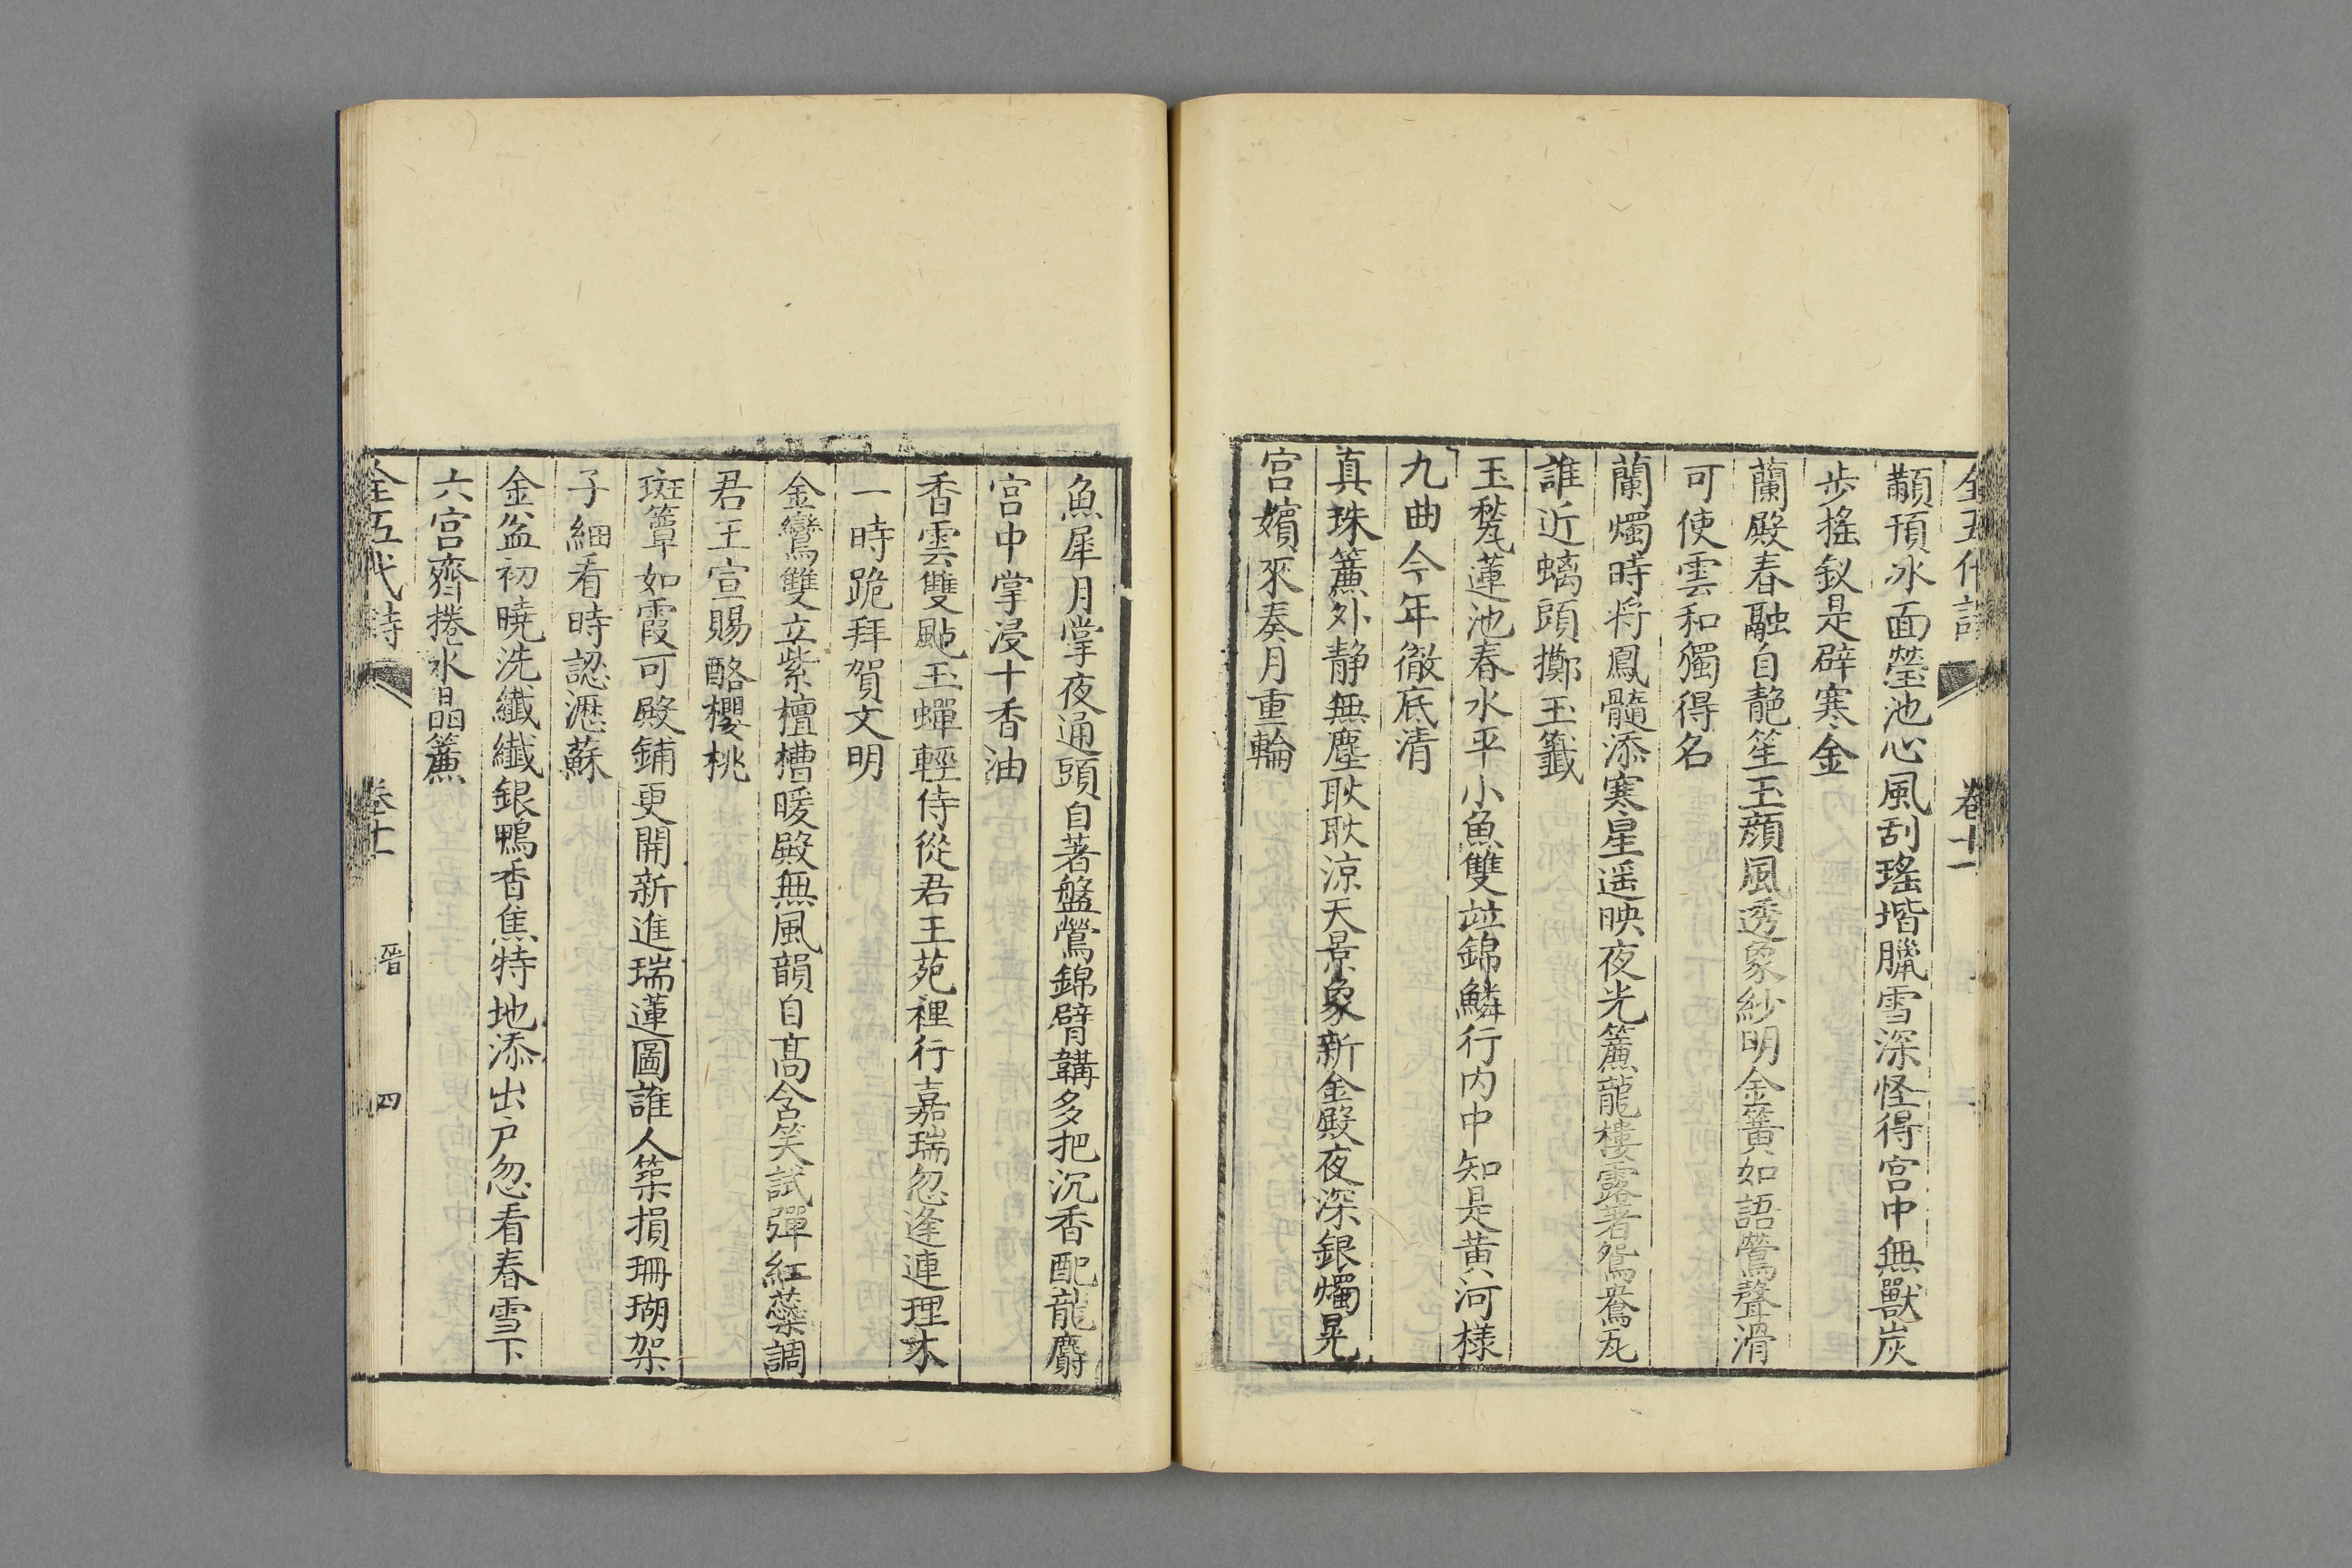 全五代詩 卷十一
顜頇冰面瑩池心風刮瑤堦臘雪深怪得宮中無獸炭
步搖釵是辟寒金
蘭殿春融自靘笙玉顔風透象紗明金簧如語鶯聲滑
可使雲和獨得名
蘭燭時将鳳髓添寒星遥映夜光簾龍樓露着鴛鴦瓦
誰近螭頭擲玉籖
玉甃蓮池春水平小魚雙竝錦鱗行内中知是黄河様
九曲今年徹底清
真珠簾外静無塵耿耿凉天景象新金殿夜深銀燭晃
宮嬪來奏月重輪
魚犀月掌夜通頭自著盤鶯錦臂韝多把沉香配龍麝
宮中掌浸十香油
香雲雙颭玉蟬輕侍從君王苑裡行嘉瑞忽逢連理木
一時跪拜賀文明
金鸞雙立紫檀槽暖殿無風韻自髙含笑試彈紅蘂調
君王宣賜酪櫻桃
斑簟如霞可殿鋪更開新進瑞蓮圖誰人築損珊瑚架
子細看時認瀝蘇
金盆初曉洗纖纖銀鴨香焦特地添出戸忽看春雪下
六宮齊捲水晶簾
全五代詩 卷十一 晉 四